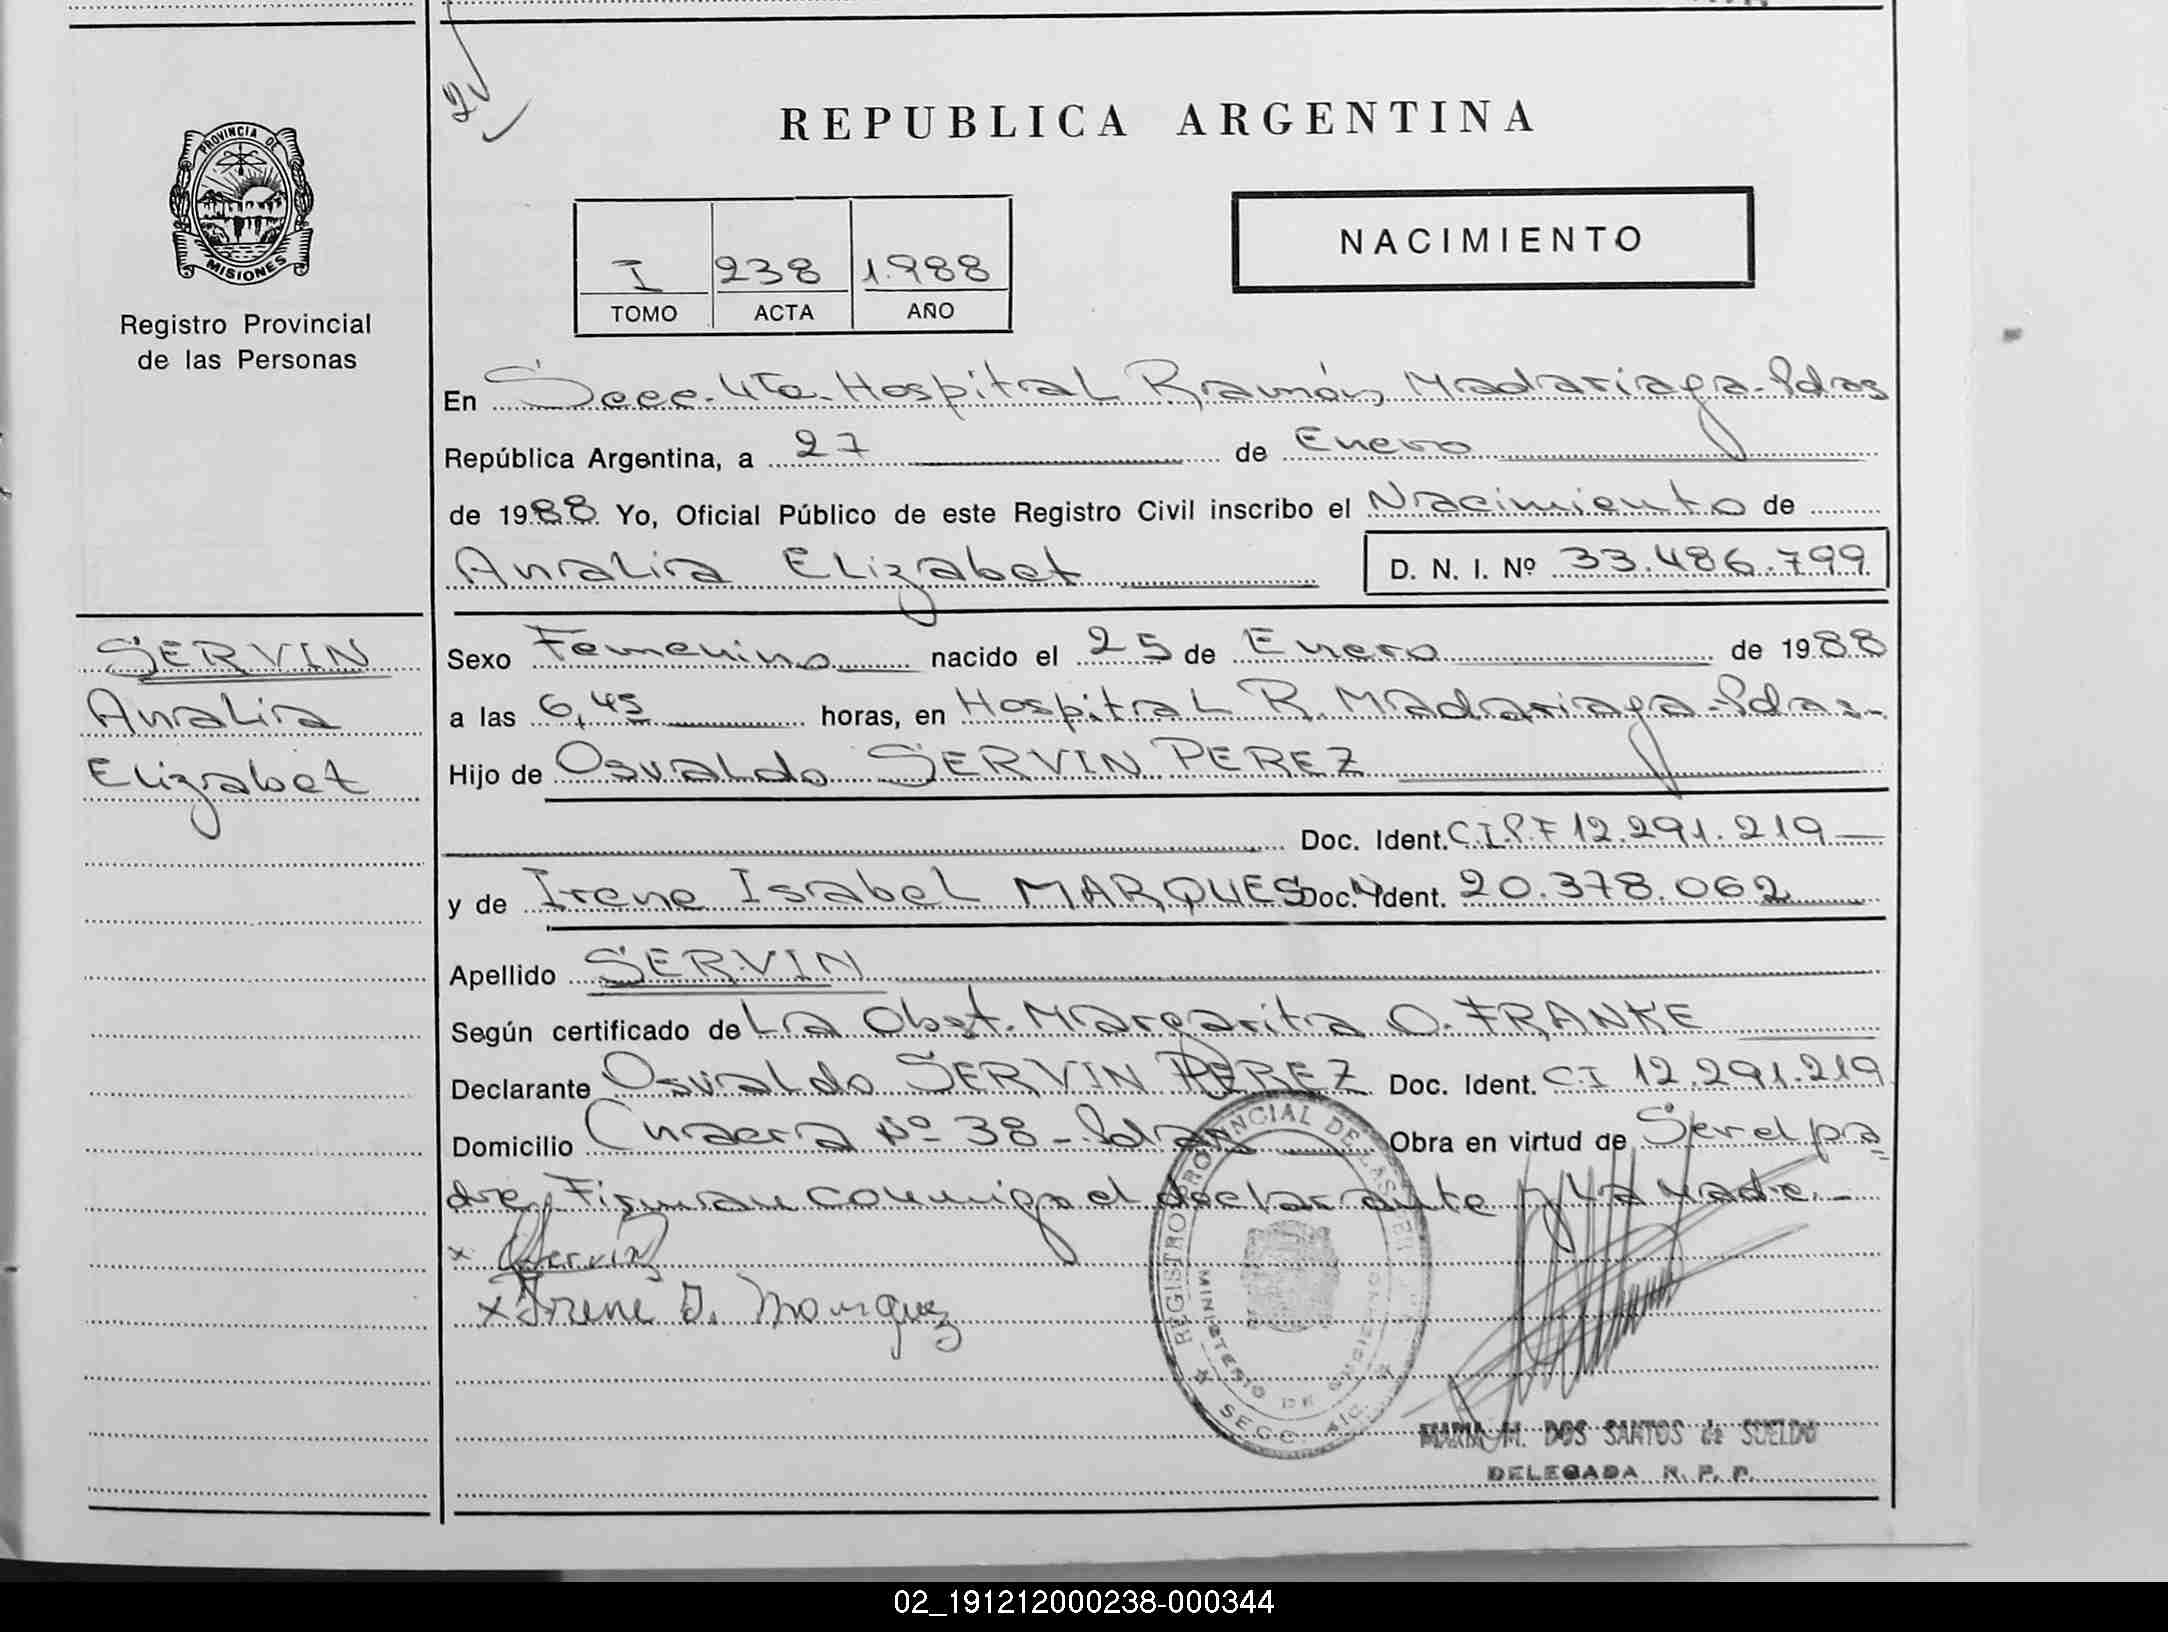 REPUBLICA ARGENTINA
PROVINCIA DE
MISIONES
Registro Provincial
de las Personas
I 238 1.988
TOMO ACTA AÑO
NACIMIENTO
En Secc. 4ta. Hospital Ramón Madariaga - Pdas
República Argentina, a 27 de Enero
de 1988 Yo, Oficial Público de este Registro Civil inscribo el Nacimiento de
Analia Elizabet D. N. I. Nº 33.486.799
SERVIN
Analia
Elizabet
Sexo Femenino nacido el 25 de Enero de 1988
a las 6,45 horas, en Hospital R. Madariaga - Pdas -
Hijo de Osvaldo SERVIN PEREZ
Doc. Ident. C.I.P.F 12.291.219
y de Irene Isabel MARQUES Doc. Ident. 20.378.062
Apellido SERVIN
Según certificado de La Obst. Margarita O. FRANKE
Declarante Osvaldo SERVIN PEREZ Doc. Ident. CI 12.291.219
Domicilio Chacra Nº 38 - Pdas Obra en virtud de Ser el pa
dre, Firman conmigo el declarante y la Madre. -
x Servin
x Irene I. Marquez
REGISTRO PROVINCIAL DE LAS
MINISTERIO DE GOBIERNO
SECC.
MARIA M. DOS SANTOS de SUELDO
DELEGADA R. P. P.
02_191212000238-000344